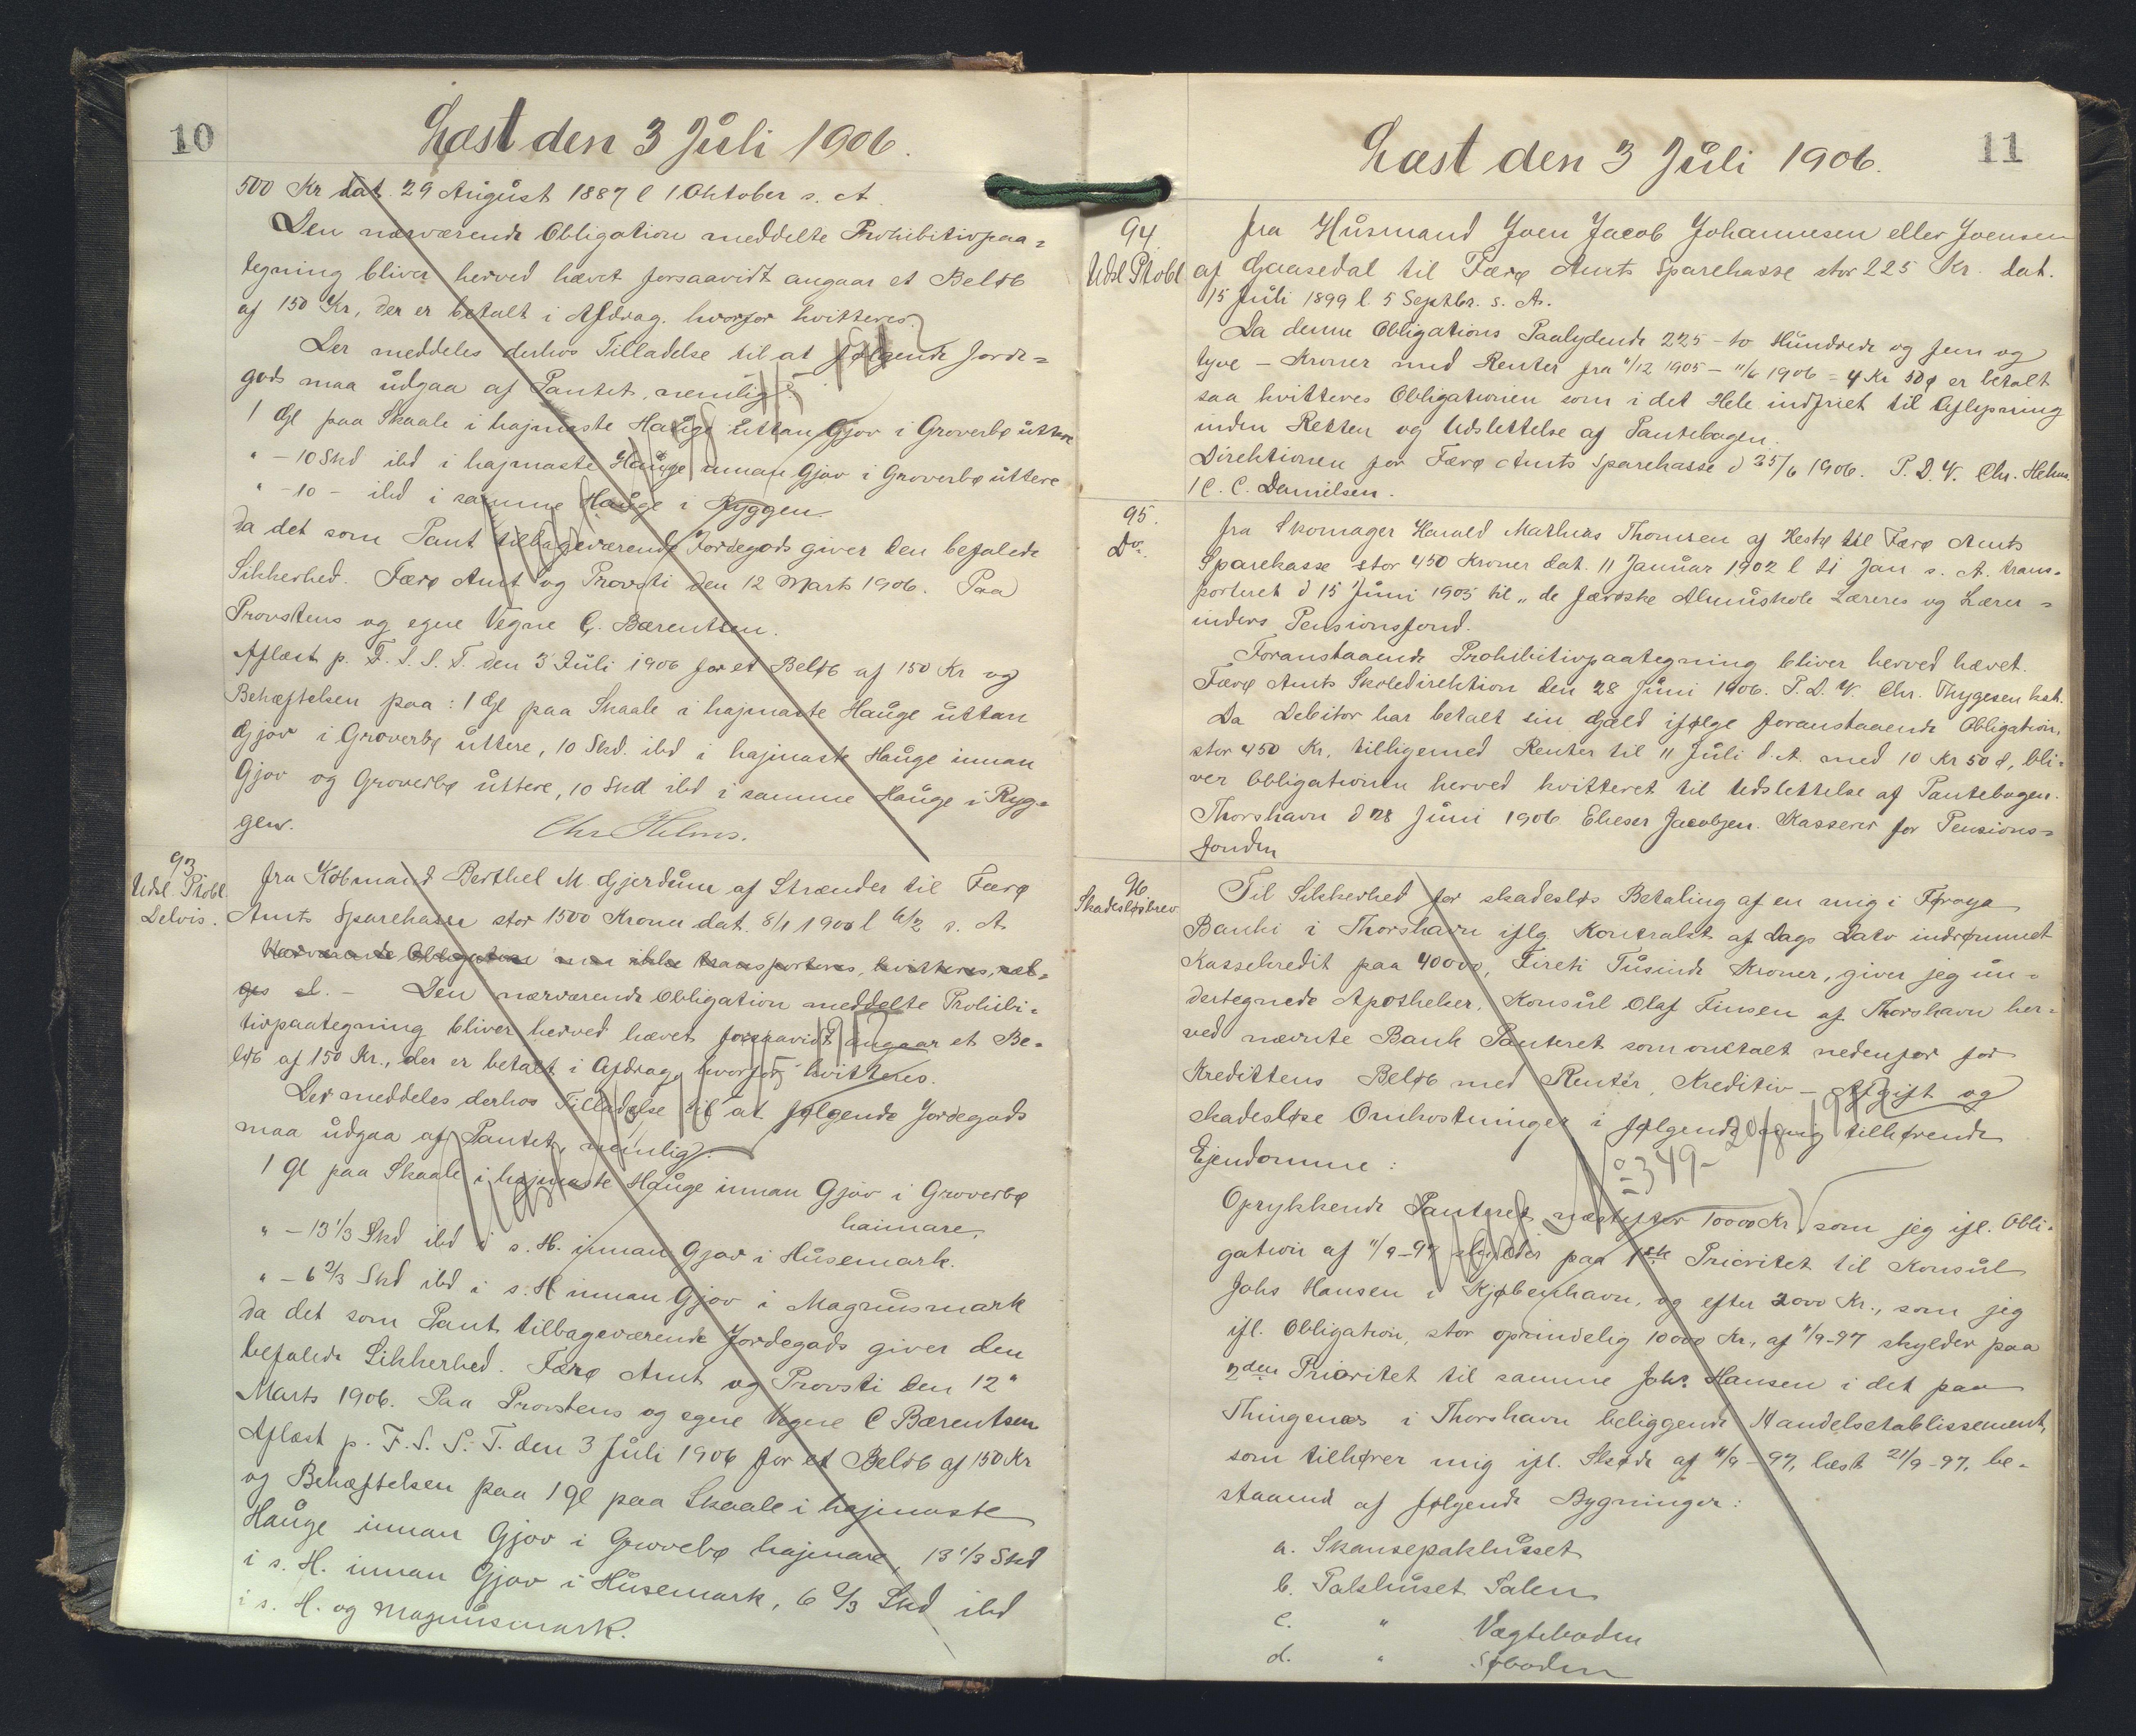 10
Læst den 3 Juli 1906.
500 Kr dat. 29 August 1887 l 1 Oktober s. A.
Den nærværende Obligation meddelte Prohibitivpaa=
tegning bliver herved hævet forsaavidt angaar et Beløb
af 150 Kr, der er betalt i Afdrag, hvorfor kvitteres.
Der meddeles derhos Tilladelse til at følgende Jorde=
gods maa udgaa af Pantet, nemlig:
1 Gl paa Skaale i hajmaste Hauge uttan Gjov i Groverbø uttere
" - 10 Skd ibd i hajmaste Hauge innan Gjov i Groverbø uttere
" - 10 - ibd i samme Hauge i Ryggen.
da det som Pant tilbageværende Jordegods giver den befalede
Sikkerhed. Færø Amt og Provsti den 12 Marts 1906. Paa
Provstens og egne Vegne C. Bærentsen.
Aflæst p. F. S. S. T. den 3 Juli 1906 for et Beløb af 150 Kr og
Behæftelsen paa: 1 Gl paa Skaale i hajmaste Hauge uttan
Gjov i Groverbø uttere, 10 Skd. ibd i hajmaste Hauge innan
Gjov og Groverbø uttere, 10 Skd ibd i samme Hauge i Ryg=
gen.
Chr Helms.
93
Udsl. Ptobl
Delvis.
fra Købmand Berthel M. Gjerdum af Strænder til Færø
Amts Sparekasse stor 1500 Kroner dat. 8/1 1900 l 6/2 s. A
Nærværende Obligation maa ikke transporteres, kvitteres, sæl=
ges el. - Den nærværende Obligation meddelte Prohibi=
tivpaategning bliver herved hævet forsaavidt angaar et Be=
løb af 150 Kr., der er betalt i Afdrag, hvorfor kvitteres.
Der meddeles derhos Tilladelse til at følgende Jordegods
maa udgaa af Pantet, nemlig:
1 Gl paa Skaale i hajmaste Hauge innan Gjov i Groverbø
haimare,
" - 13 1/3 Skd ibd i s. H. innan Gjov i Husemark.
" - 6 2/3 Skd ibd i s. H innan Gjov i Magnusmark
da det som Pant tilbageværende Jordegods giver den
befalede Sikkerhed. Færø Amt og Provsti den 12"
Marts 1906. Paa Provstens og egne Vegne C Bærentsen
Aflæst p. F. S. S. T. den 3 Juli 1906 for et Beløb af 150 Kr
og Behæftelsen paa 1 Gl paa Skaale i hajmaste
Hauge innan Gjov i Groverbø hajmare, 13 1/3 Skd
i s. H. innan Gjov i Husemark, 6 2/3 Skd ibd
i s. H. og Magnusmark.
11
Læst den 3 Juli 1906.
94.
Udsl Ptobl
fra Husmand Joen Jacob Johannesen eller Joensen
af Gaasedal til Færø Amts Sparekasse stor 225 Kr. dat.
15 Juli 1899 l. 5 Septbr. s. A.
Da denne Obligations Paalydende 225 - to Hundrede og fem og
tyve - Kroner med Renter fra 11/12 1905 - 11/6 1906 = 4 Kr 50 ø er betalt
saa kvitteres Obligationen som i det Hele indfriet til Aflysning
inden Retten og Udslettelse af Pantebogen.
Direktionen for Færø Amts Sparekasse d 25/6 1906. P. D. V. Chr. Helms.
/ C. C. Danielsen.
95.
Do.
fra Skomager Harald Mathias Thomsen af Hestø til Færø Amts
Sparekasse stor 450 Kroner dat. 11 Januar 1902 l 21 Jan s. A. trans=
porteret d 15 Juni 1905 til "de færøske Almuskole Læreres og Lærer=
inders Pensionsfond.
Foranstaaende Prohibitivpaategning bliver herved hævet.
Færø Amts Skoledirektion den 28 Juni 1906. P. D. V. Chr. Thygesen kst.
Da Debitor har betalt sin Gæld ifølge foranstaaende Obligation,
stor 450 Kr, tilligemed Renter til 11 Juli d. A. med 10 Kr 50 ø, bli=
ver Obligationen herved kvitteret til Udslettelse af Pantebogen.
Thorshavn d 28 Juni 1906. Elieser Jacobsen. Kasserer for Pensions=
fonden
96
Skadesløsbrev
Til Sikkerhed for skadesløs Betaling af en mig i Føroya
Banki i Thorshavn iflg Kontrakt af Dags Dato indrømmet
Kassekredit paa 40000, Fireti Tusinde Kroner, giver jeg un=
dertegnede Apotheker, Konsul Olaf Finsen af Thorshavn her=
ved nævnte Bank Panteret som omtalt nedenfor for
Kredittens Beløb med Renter, Kreditiv - Afgift og
skadesløse Omkostninger i følgende mig tilhørende
Ejendomme:
Oprykkende Panteret næstefter 10000 Kr som jeg ifl. Obli=
gation af 11/9-97 skylder paa 1ste Prioritet til Konsul
Johs Hansen i Kjøbenhavn, og efter 2000 Kr., som jeg
ifl. Obligation, stor oprindelig 10000 Kr, af 11/9-97 skylder paa
2den Prioritet til samme Johs. Hansen i det paa
Thingenæs i Thorshavn beliggende Handelsetablissement,
som tilhører mig ifl. Skøde af 11/9-97, læst 21/9-97, be=
staaende af følgende Bygninger:
a. Skansepakhuset
b. Pakhuset Salen
c. " Vægteboden
d. " Søboden